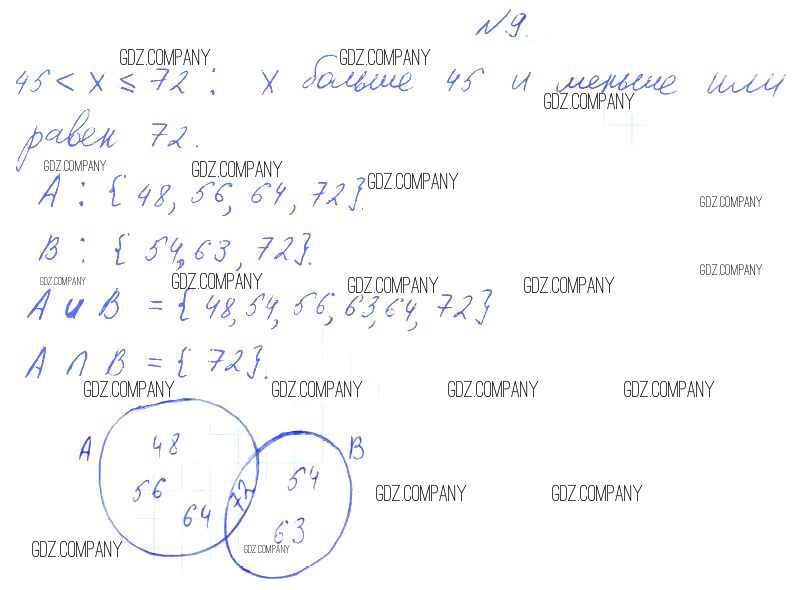 N.9.
GDZ.COMPANY GDZ.COMPANY
45 < x ≤ 72 : x больше 45 и меньше или
GDZ.COMPANY
равен 72.
GDZ.COMPANY GDZ.COMPANY GDZ.COMPANY
A : { 48, 56, 64, 72}.
GDZ.COMPANY
B : { 54, 63, 72}.
GDZ.COMPANY
GDZ.COMPANY GDZ.COMPANY GDZ.COMPANY GDZ.COMPANY
A и B = { 48, 54, 56, 63, 64, 72}
A ∩ B = { 72}.
GDZ.COMPANY GDZ.COMPANY GDZ.COMPANY GDZ.COMPANY
A 48 B
56 72 54
GDZ.COMPANY GDZ.COMPANY
64 63
GDZ.COMPANY GDZ.COMPANY